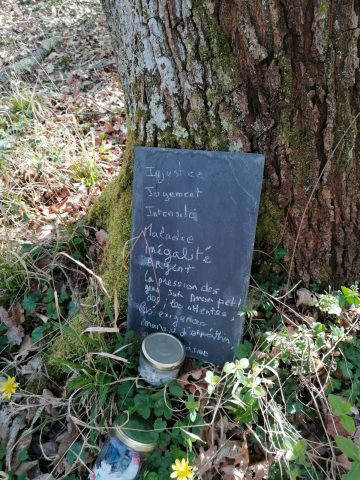 Injustice
Jugement
Intensité
Maladie
Inégalité
Argent
La pression des
gens sur mon petit
dos, les attentes
les exigences
manque d'